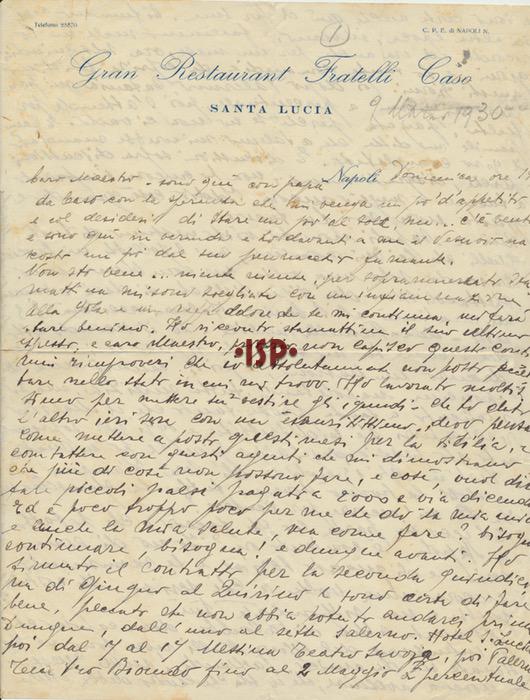 Telefono 25870
C. P. E. di NAPOLI N.
1
Gran Restaurant Fratelli Caso
SANTA LUCIA
9 Marzo 1930
Napoli Domenica ore 1
Caro Maestro - sono qui con papà
da Caso con la speranza che mi venga un po' d'appetito
e col desiderio di stare un po' al sole, ma... c'è vento
e sono qui in veranda e ho davanti a me il Vesuvio na
costo un po' dal suo pennacchio fumante.
Non sto bene... niente niente, per soprammercato sta
mattina mi sono svegliata con un infiammazione
alla gola e un dolore che mi continua,
stare benino. Ho ricevuto stamattina il suo ultimo
espresso, e caro Maestro, non capisco questi conti
nui rimproveri che io assolutamente non posso accet
tare nello stato in cui mi trovo. Ho lavorato moltis
simo per mettere su "Vestire gli ignudi" che ho dato
l'altro ieri sera con un esauritissimo, devo pensa
come mettere a posto questi mesi per la Sicilia, e
combattere con questi agenti che mi dimostrano
che più di così non possono fare, e così, vuol dire
fare piccoli paesi pagati a 2000 e via dicendo
Ed è poco troppo poco per me che do la mia ani
e anche la mia salute, ma come fare? bisogn
continuare, bisogna! e dunque avanti. Ho
firmato il contratto per la seconda quindici
na di Giugno al Quirino e sono certa di fare
bene, peccato che non abbia potuto andarci prim
Dunque, dall'uno al sette Salerno. Hotel S. Lucia
poi dal 7 al 17 Messina Teatro Savoja, poi Palerm
Teatro Biondo fino al 2 Maggio percentuale
ISP